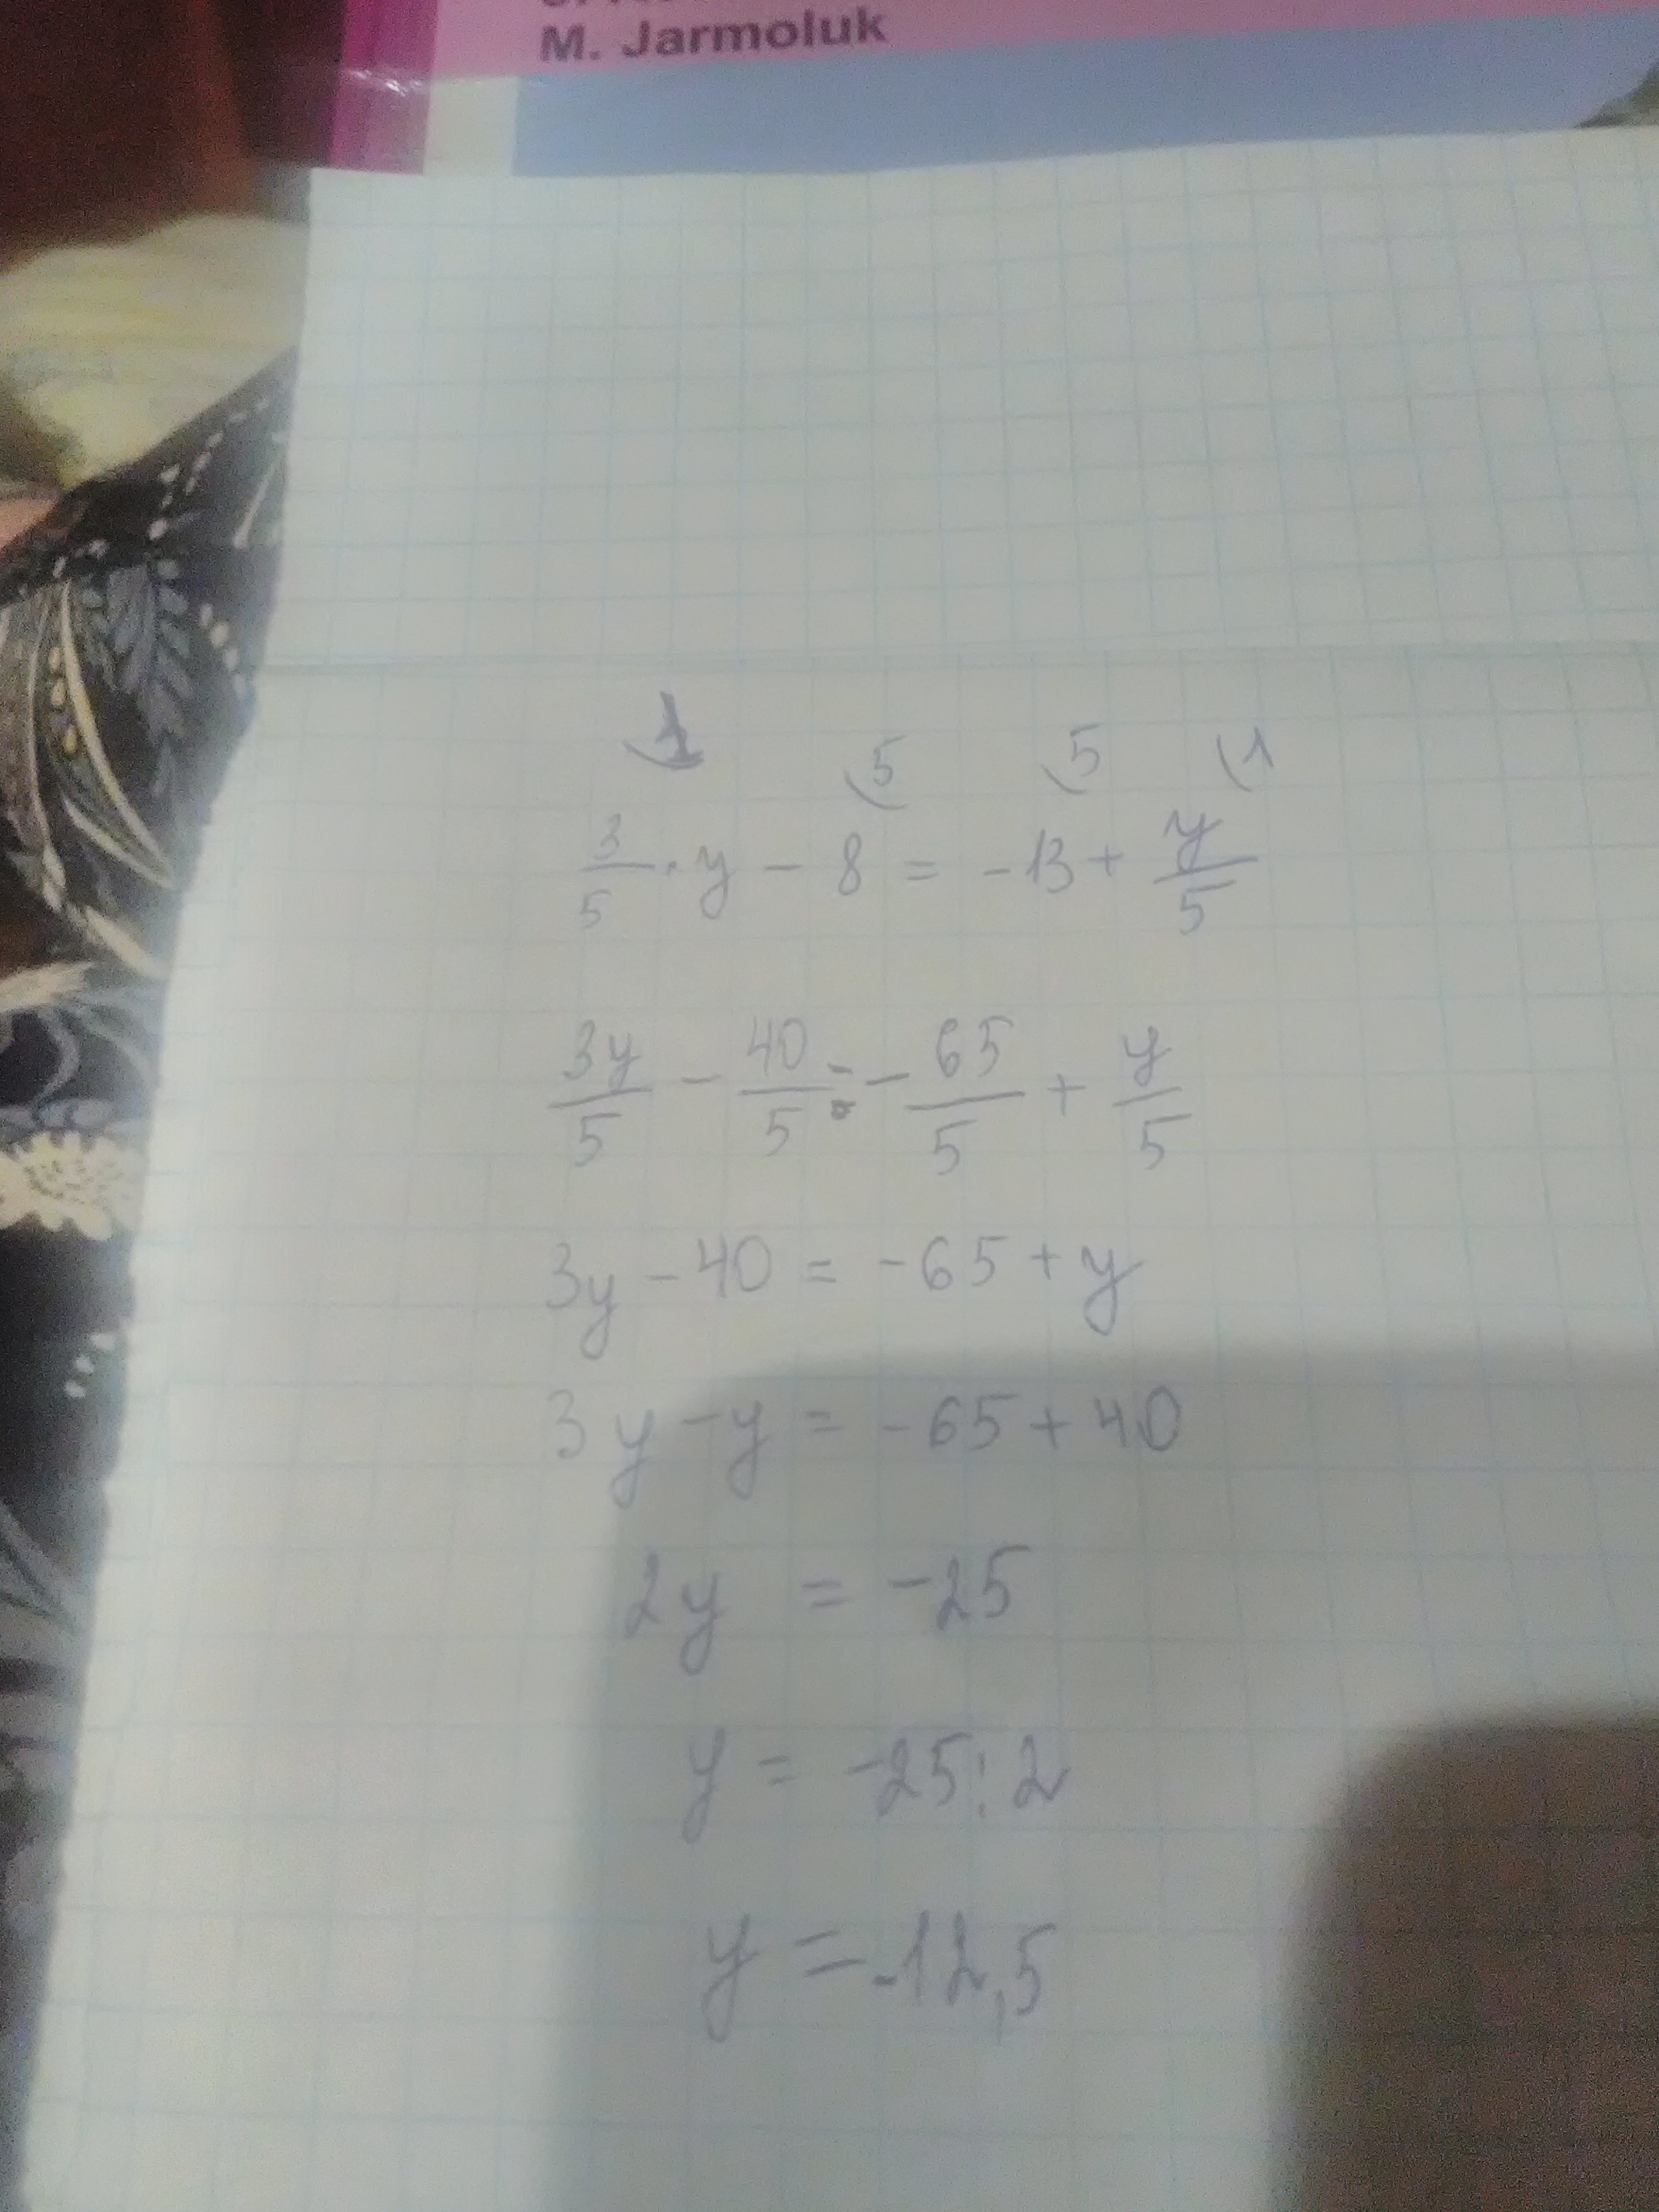 M. Jarmoluk
1 5 5 1
3/5 · y - 8 = -13 + y/5
3y/5 - 40/5 = - 65/5 + y/5
3y - 40 = -65 + y
3y - y = -65 + 40
2y = -25
y = -25 : 2
y = -12,5